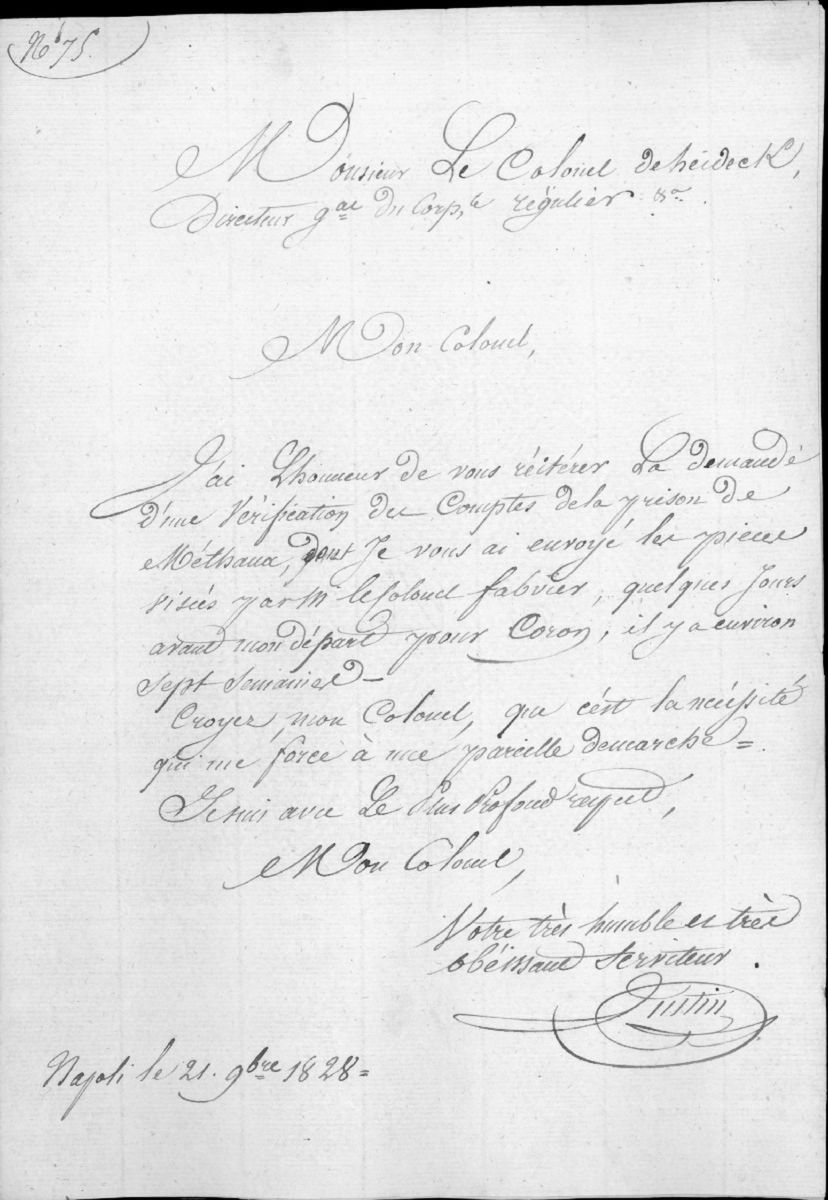 No 75.
Monsieur Le Colonel de heideck,
Directeur gal du Corps régulier &a.
Mon Colonel,
J'ai L'honneur de vous réitérer La demande
d'une Vérification des Comptes de la prison de
Méthana, dont Je vous ai envoyé les pieces
visées par M le Colonel fabvier, quelques Jours
avant mon départ pour Coron, il y a environ
sept Semaines –
Croyez, mon Colonel, que c'est la nécessité
qui me force à une pareille demarche =
Je suis avec Le Plus Profond respect,
Mon Colonel,
Votre très humble et très
obéissant Serviteur.
Justin
Napoli le 21. 9bre 1828 =